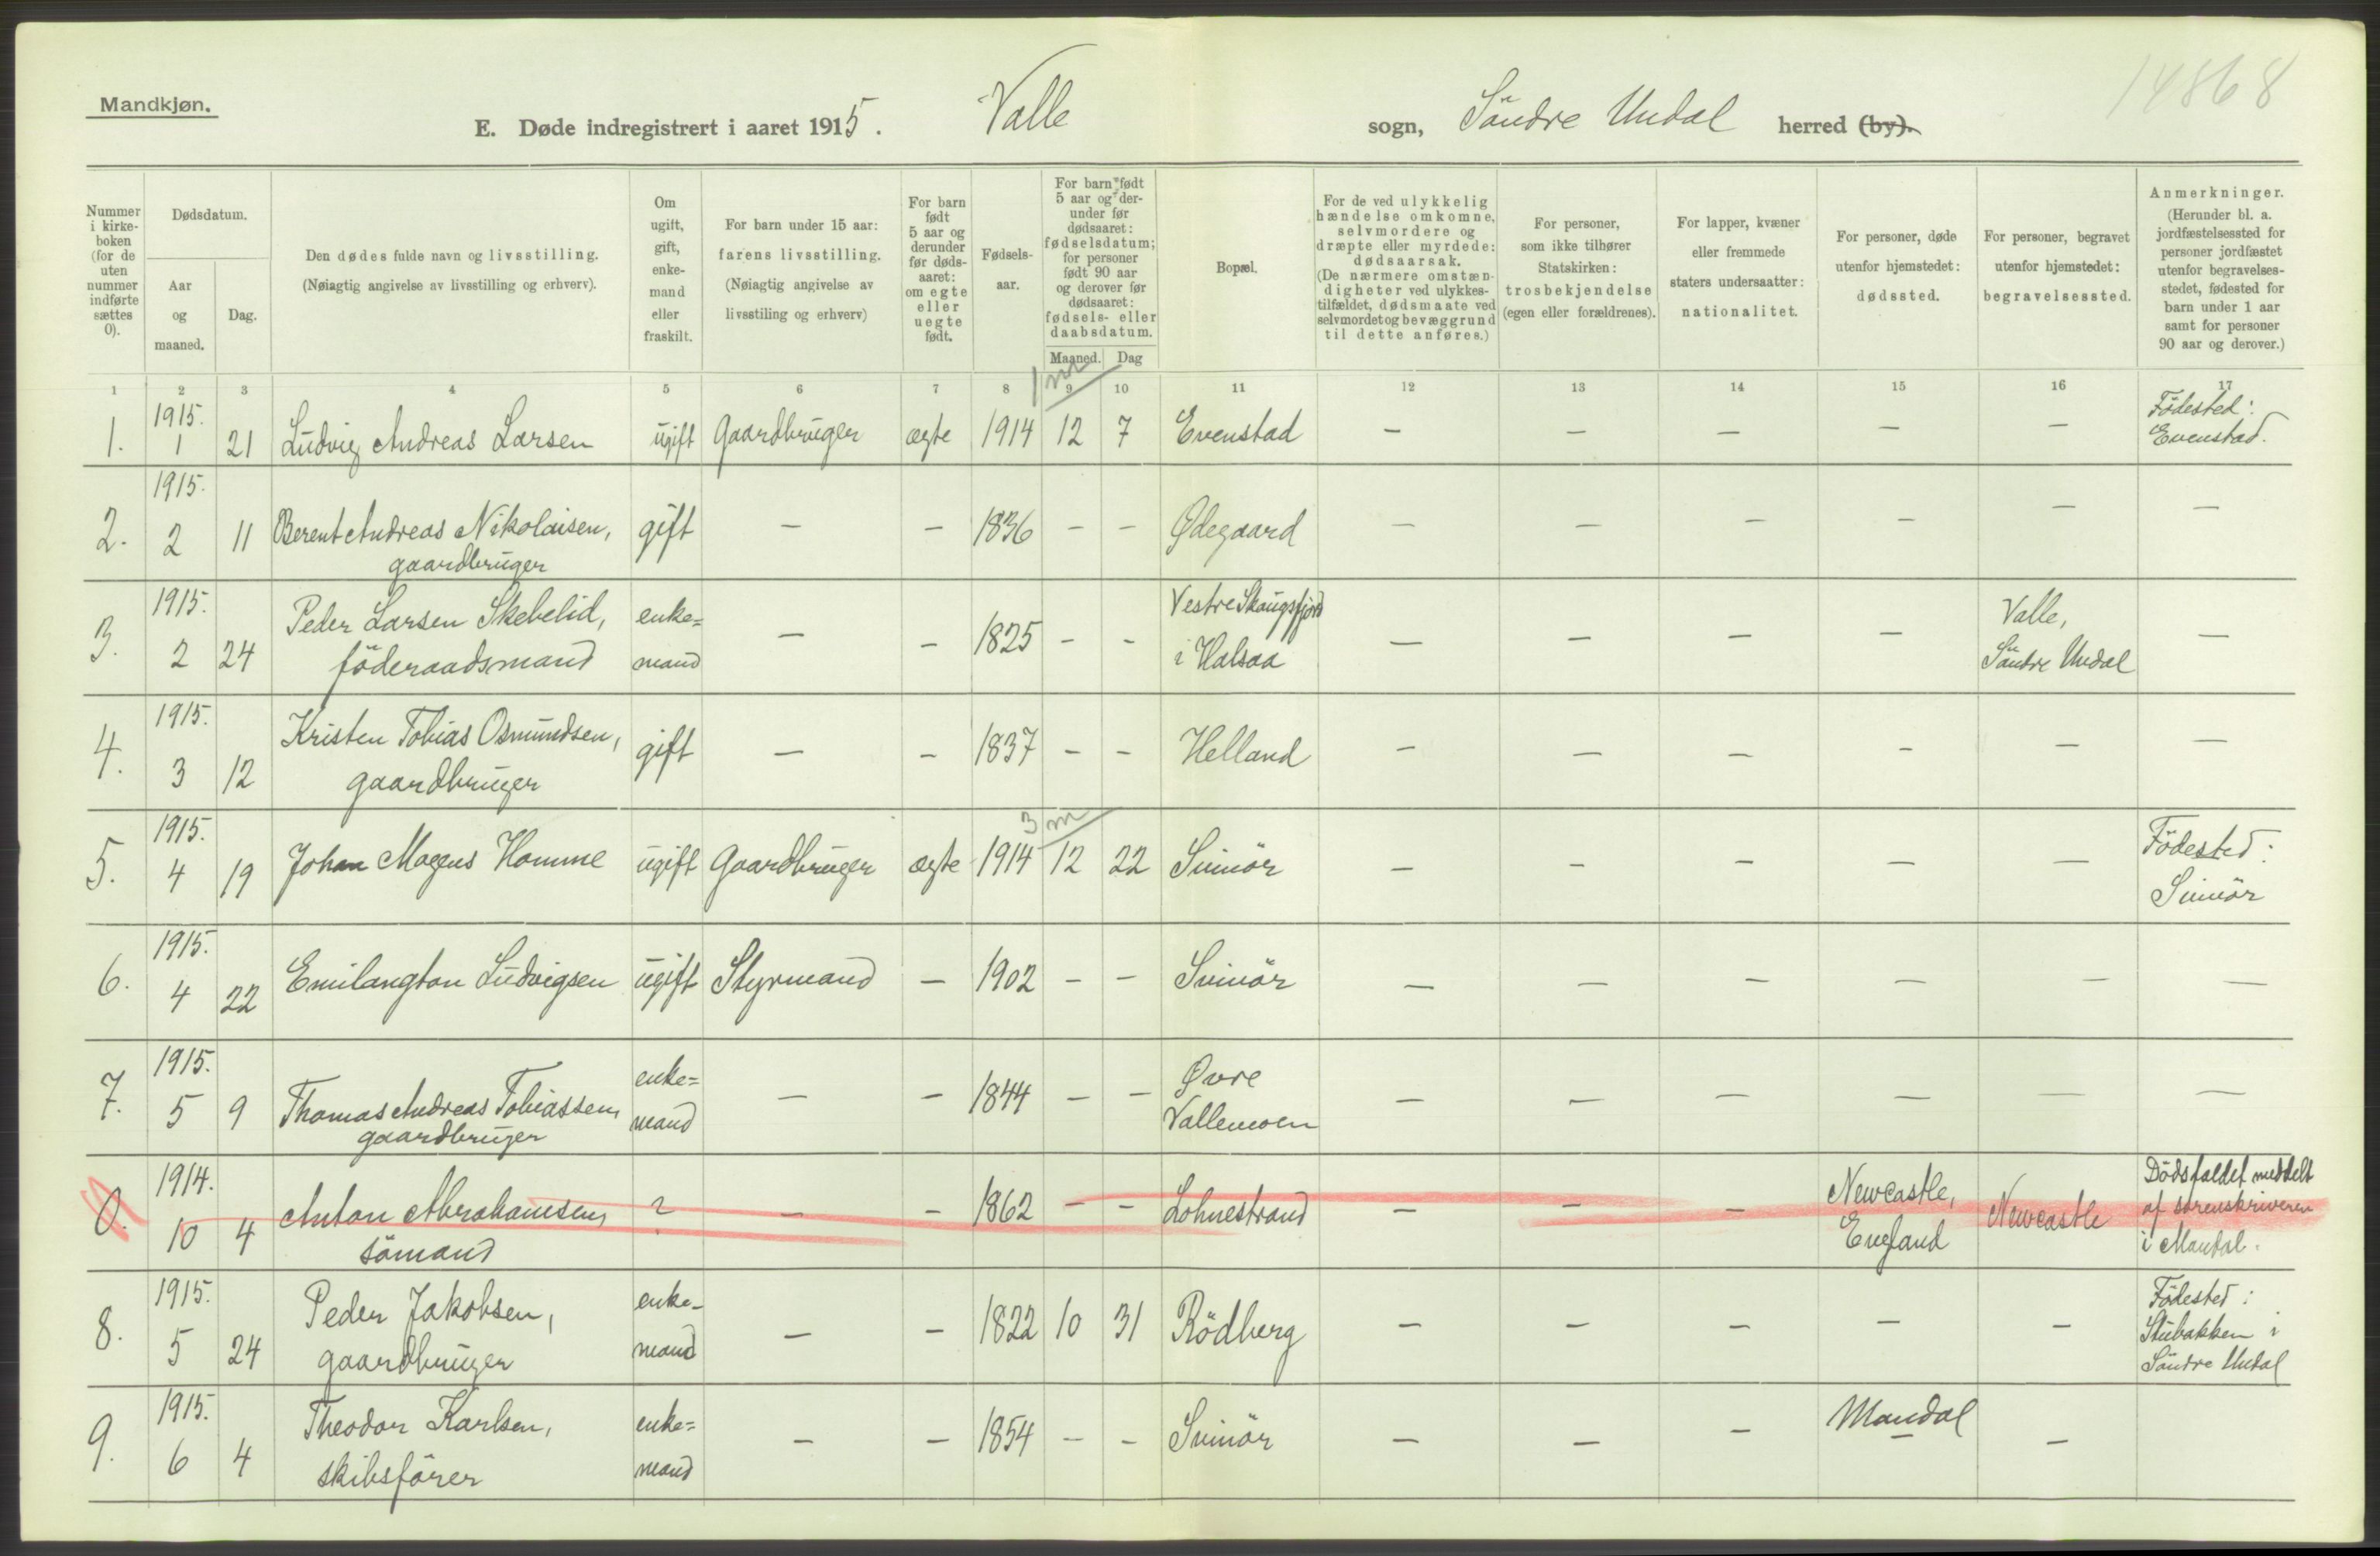 14868
Mandkjøn.
E. Døde indregistrert i aaret 1915. Valle sogn, Söndre Undal herred (by).
Nummer i kirke-boken (for de uten nummer indførte sættes 0).
Dødsdatum.
Aar og maaned.
Dag.
Den dødes fulde navn og livsstilling.
(Nøiagtig angivelse av livsstilling og erhverv).
Om ugift, gift, enke-mand eller fraskilt.
For barn under 15 aar: farens livsstilling.
(Nøiagtig angivelse av livsstiling og erhverv)
For barn født 5 aar og derunder før døds-aaret: om egte eller uegte født.
Fødsels-aar.
For barn født 5 aar og der-under før dødsaaret: fødselsdatum; for personer født 90 aar og derover før dødsaaret: fødsels- eller daabsdatum.
Maaned. Dag
Bopæl.
For de ved ulykkelig hændelse omkomne, selvmordere og dræpte eller myrdede: dødsaarsak.
(De nærmere omstæn-digheter ved ulykkes-tilfældet, dødsmaate ved selvmordet og bevæggrund til dette anføres.)
For personer, som ikke tilhører Statskirken: trosbekjendelse (egen eller forældrenes).
For lapper, kvæner eller fremmede staters undersaatter: nationalitet.
For personer, døde utenfor hjemstedet: dødssted.
For personer, begravet utenfor hjemstedet: begravelsessted.
Anmerkninger.
(Herunder bl. a. jordfæstelsessted for personer jordfæstet utenfor begravelses-stedet, fødested for barn under 1 aar samt for personer 90 aar og derover.)
1 2 3 4 5 6 7 8 9 10 11 12 13 14 15 16 17
1 m
1. 1915. 1 21 Ludvig Andreas Larsen ugift Gaardbruger ægte 1914 12 7 Evenstad – – – – – Födested: Evenstad.
2. 1915. 2 11 Berent Andreas Nikolaisen, gaardbruger gift – – 1836 – – Ødegaard – – – – – –
3. 1915. 2 24 Peder Larsen Skebelid, föderaadsmand enke=mand – – 1825 – – Vestre Skaugsfjord i Halsaa – – – – Valle, Söndre Undal –
4. 1915. 3 12 Kristen Tobias Osmundsen, gaardbruger gift – – 1837 – – Helland – – – – – –
3 m
5. 1915. 4 19 Johan Magnus Homme ugift Gaardbruger ægte 1914 12 22 Svinör – – – – – Födested: Svinör
6. 1915. 4 22 Emilangton Ludvigsen ugift Styrmand – 1902 – – Svinör – – – – – –
7. 1915. 5 9 Thomas Andreas Tobiassen, gaardbruger enke=mand – – 1844 – – Øvre Vallemoen – – – – – –
0. 1914. 10 4 Anton Abrahamsen, sömand ? – – 1862 – – Lohnestrand – – – Newcastle, England Newcastle Dödsfaldet meddelt af sorenskriveren i Mandal.
8. 1915. 5 24 Peder Jakobsen, gaardbruger enke-mand – – 1822 10 31 Rödberg – – – – – Födested: Stubakken i Söndre Undal
9. 1915. 6 4 Theodor Karlsen, skibsförer enke=mand – – 1854 – – Svinör – – – Mandal –